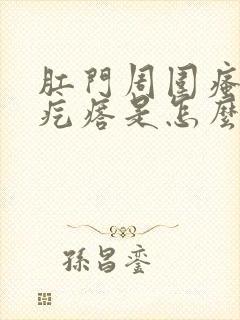 肛門周圍瘙
疙瘩是怎麼
孫昌鑾